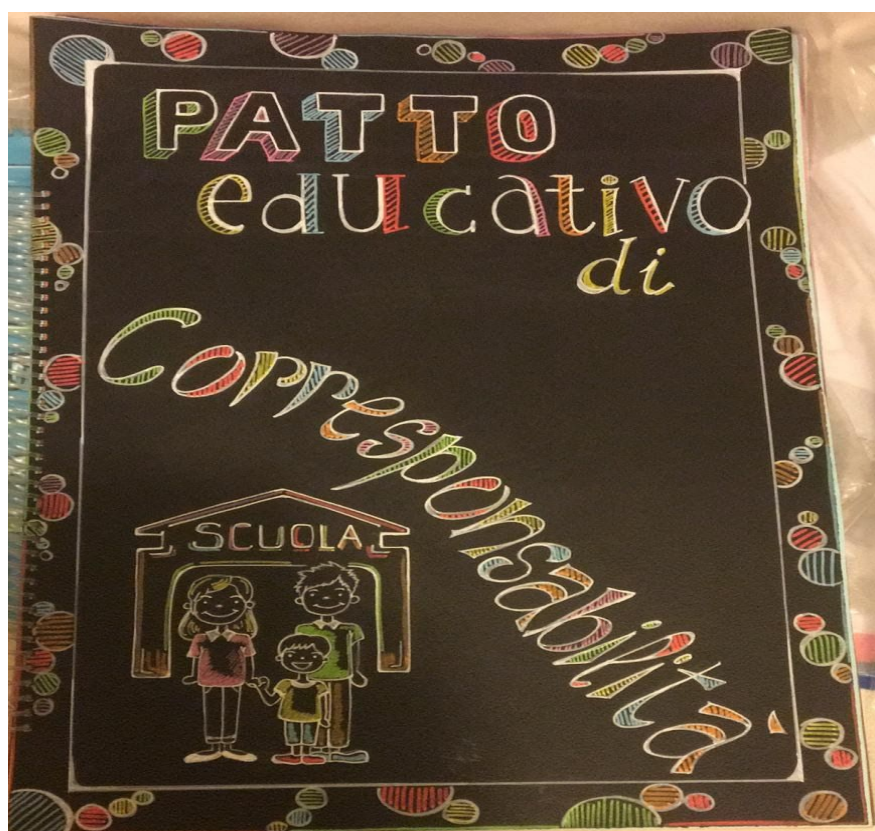 PATTO
educativo
di
Corresponsabilità
SCUOLA